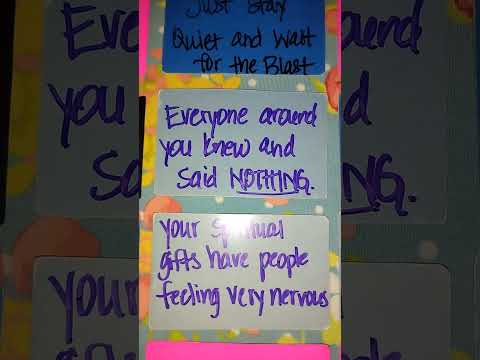 Just Stay
Quiet and Wait
for the Blast
Everyone around
you knew and
Said NOTHING.
your Spiritual
gifts have people
feeling very nervous